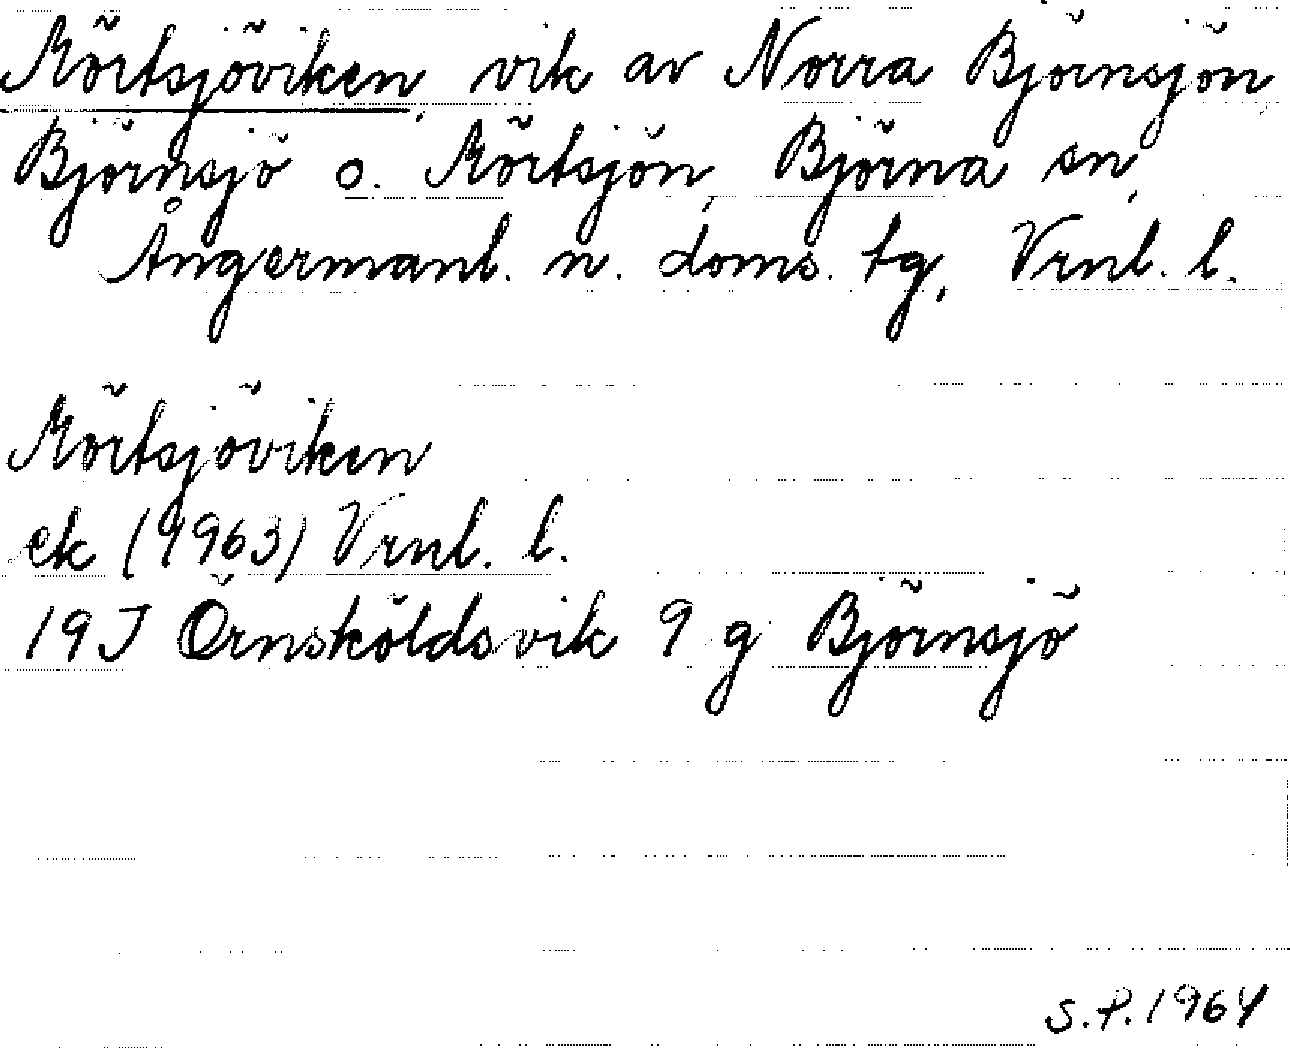 Mörtsjöviken, vik av Norra Björnsjön,
Björnsjö o. Mörtsjön, Björna sn,
Ångermanl. n. doms. tg, Vrnl. l.
Mörtsjöviken
ek (1963) Vrnl. l.
19J Örnsköldsvik 9 g Björnsjö
S.P. 1964